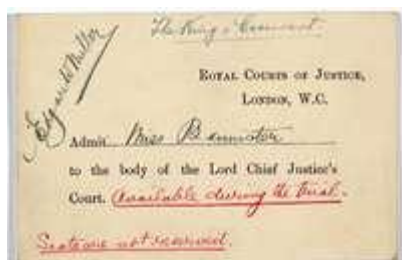 The King v Casement.
ROYAL COURTS OF JUSTICE,
LONDON, W.C.
Admit Miss Bannister
to the body of the Lord Chief Justice's
Court. Available during the trial.
Seats are not reserved.